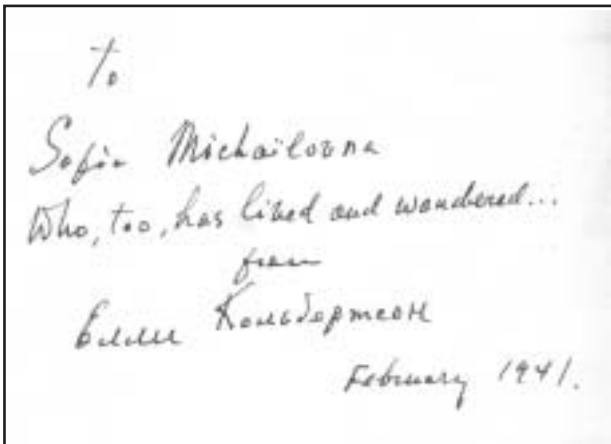 to
Sofia Michailovna
Who, too, has lived and wandered...
from
Елли Кольбертсон
February 1941.